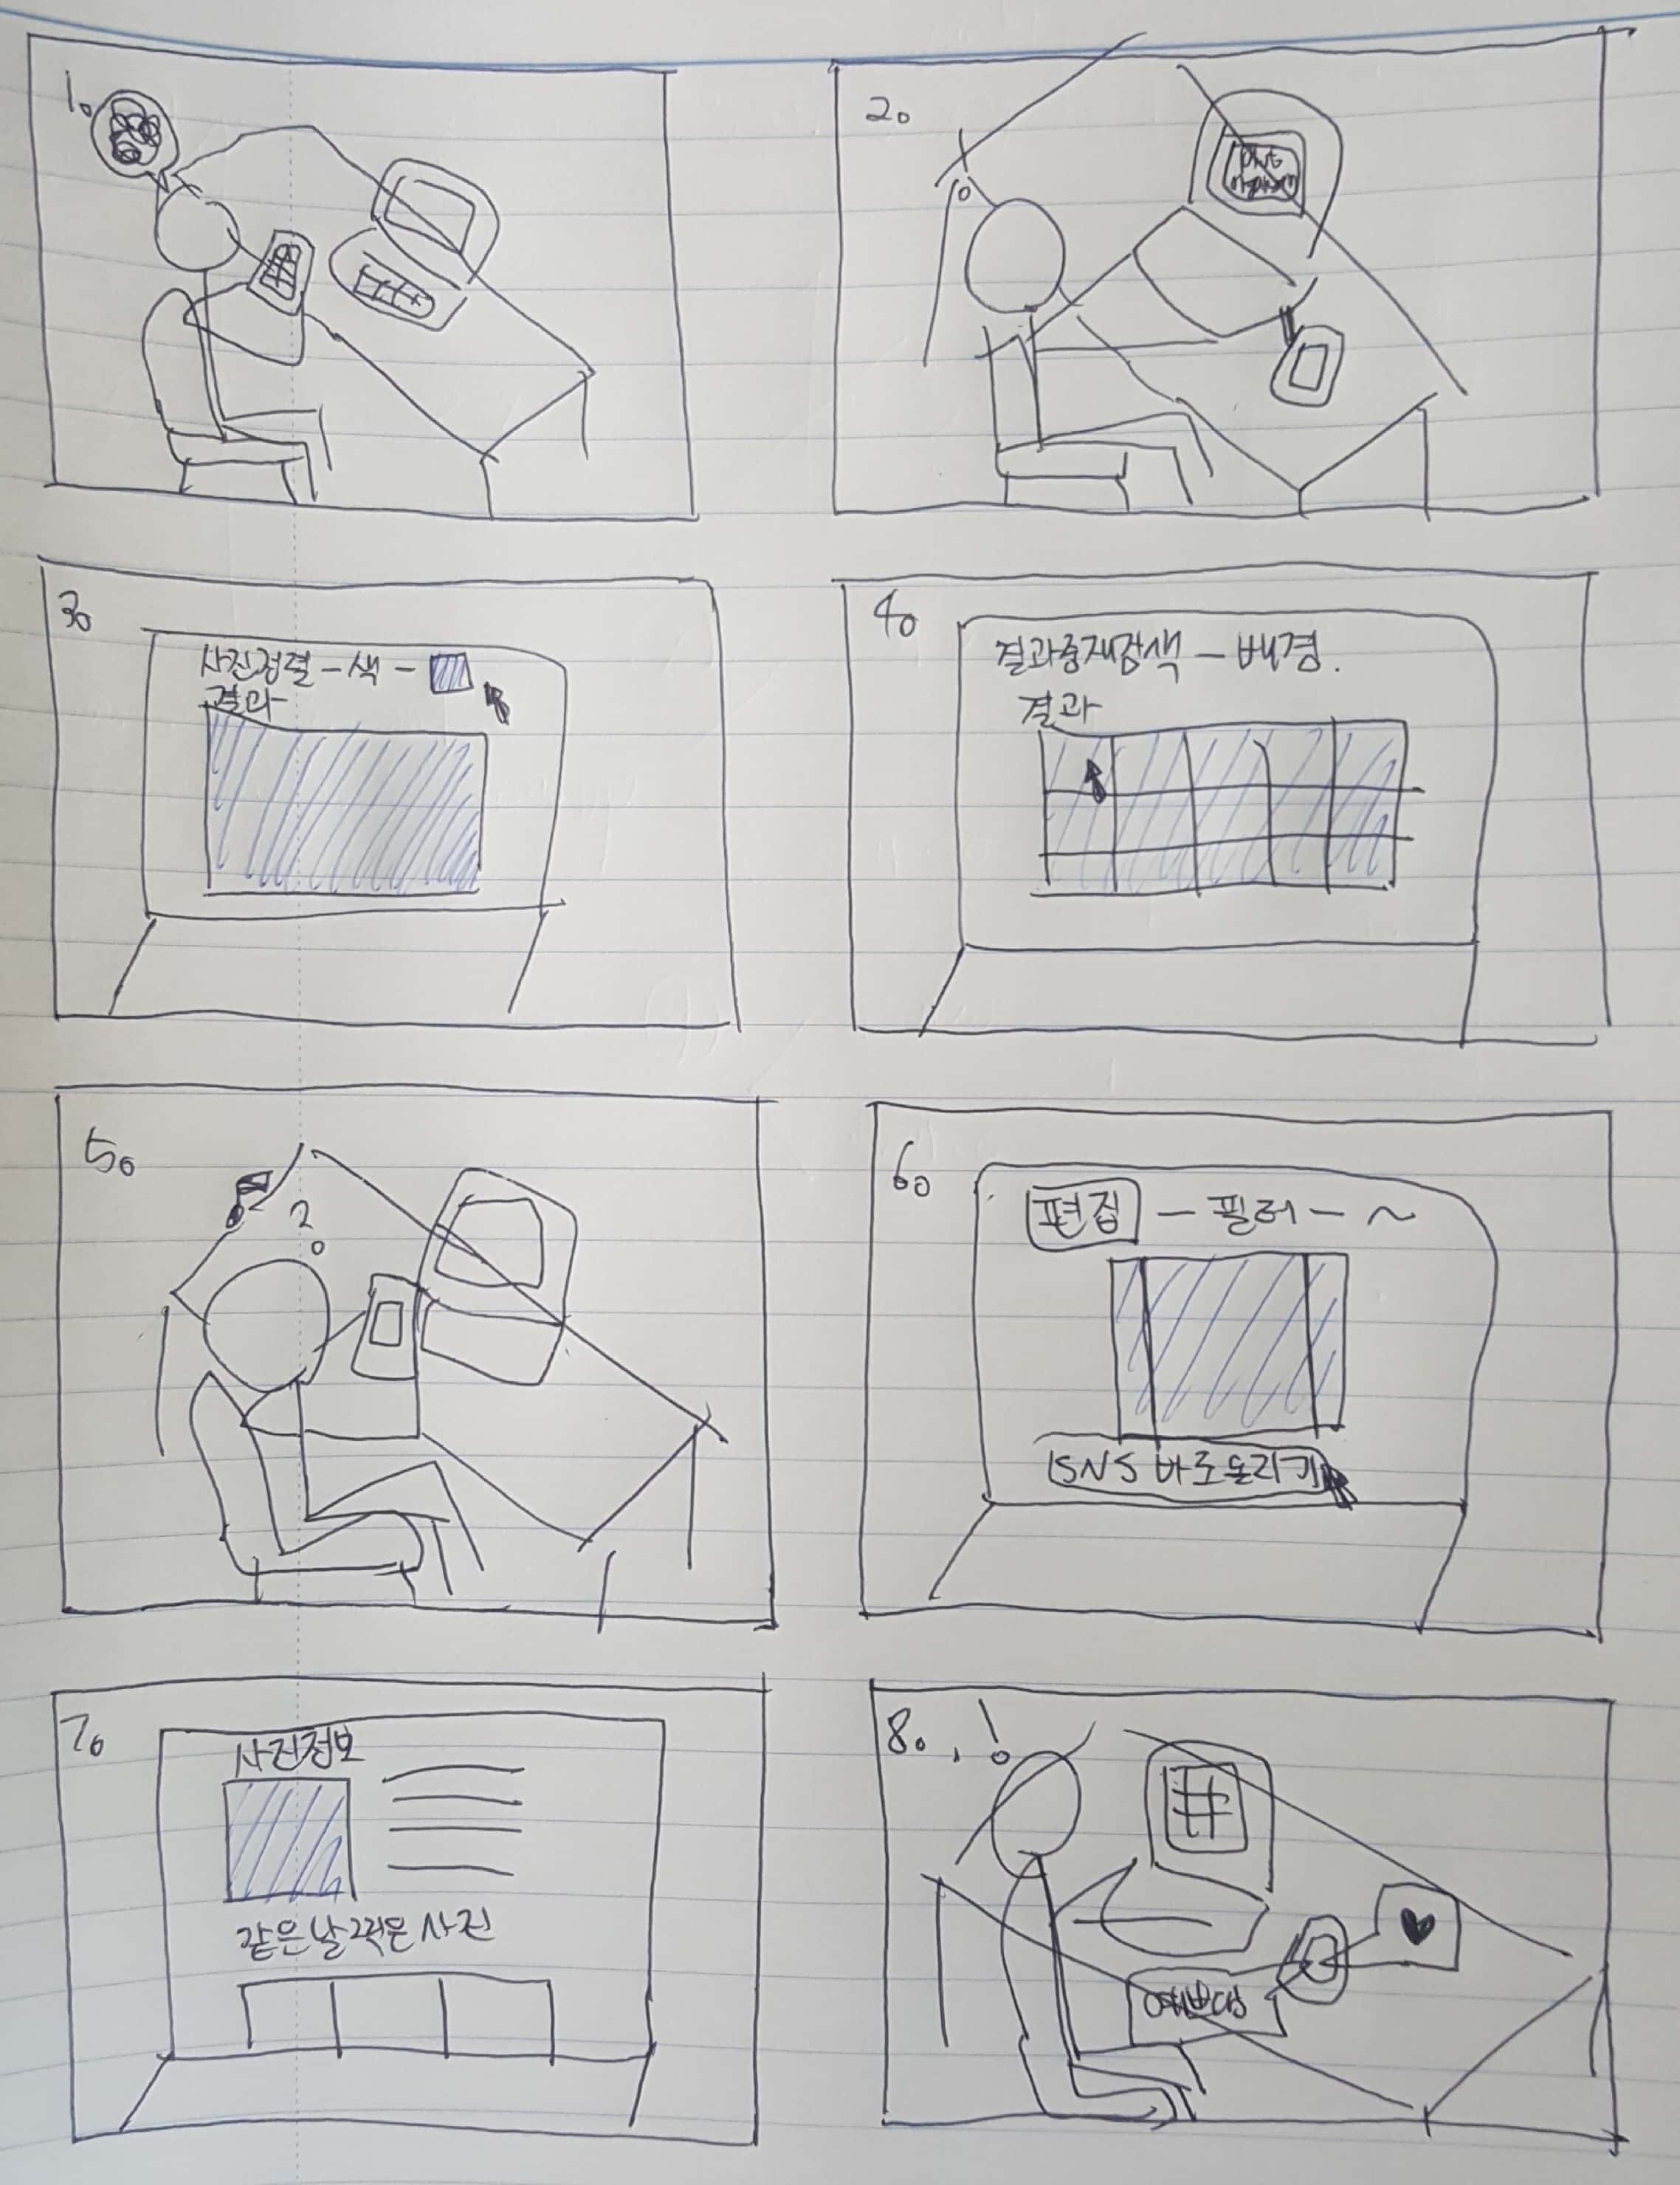 1.
2.
3.
사진정렬 - 색 -
결과
4.
결과중재검색 - 배경.
결과
5.
?
6.
편집 - 필터 - ~
SNS 바로올리기
7.
사진정보
같은날찍은 사진
8.
!
예쁘당